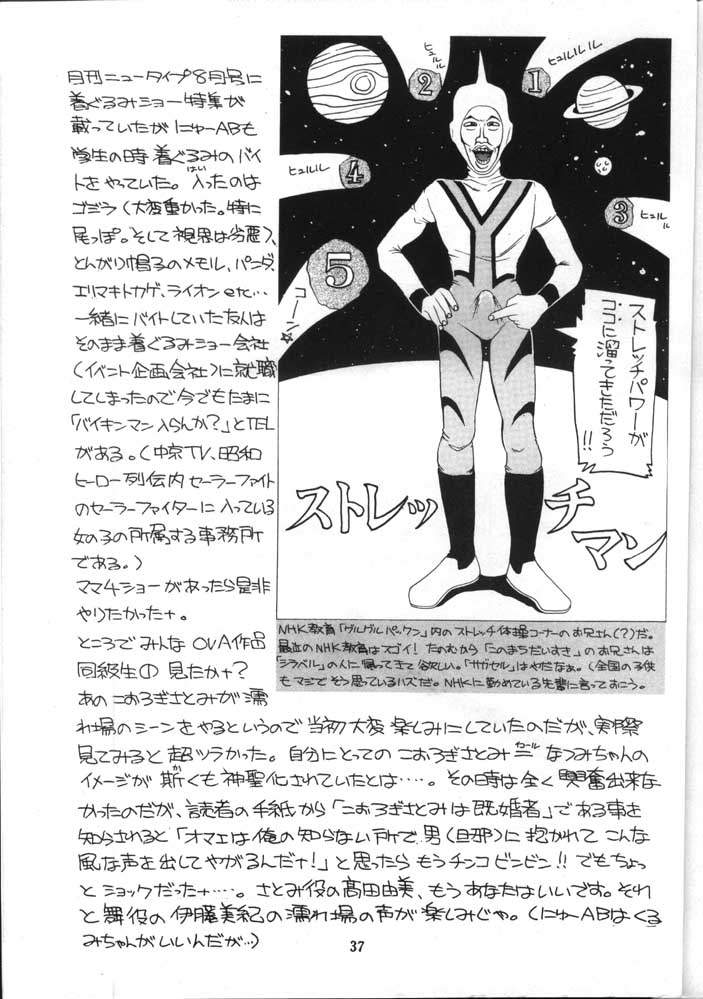 月刊ニュータイプ8月号に
着ぐるみショー特集が
載っていたがにゅーABも
学生の時着ぐるみのバイ
トをやっていた。入ったのは
はい
ゴジラ(大変重かった。特に
尾っぽ。そして視界は劣悪)、
とんがり帽子のメモル、パンダ、
エリマキトカゲ、ライオンetc…
一緒にバイトしていた友人は
そのまま着ぐるみショー会社
(イベント企画会社)に就職
してしまったので今でもたまに
「バイキンマン入らんか?」とTEL
がある。(中京TV、昭和
ヒーロー列伝内セーラーファイト
のセーラーファイターに入っている
女の子の所属する事務所
である。)
ママ4ショーがあったら是非
やりたかったナ。
ところでみんなOVA作品
同級生① 見たかナ?
あのこおろぎさとみが濡
れ場のシーンをやるというので当初大変楽しみにしていたのだが、実際
見てみると超ツラかった。自分にとってのこおろぎさとみ=なつみちゃんの
イコール
イメージが斯くも神聖化されていたとは…。その時は全く興奮出来な
か
かったのだが、読者の手紙から「こおろぎさとみは既婚者」である事を
知らされると「オマエは俺の知らない所で男(旦那)に抱かれてこんな
風な声を出してやがるんだナ!」と思ったらもうチンコビンビン!!でもちょっ
とショックだったナ…。さとみ役の高田由美、もうあなたはいいです。それ
と舞役の伊藤美紀の濡れ場の声が楽しみじゃ。(にゅーABはくる
みちゃんがいいんだが…)
ヒュルルル
1
ヒュルル
2
ヒュルルル
3
ヒュルルル
4
コーン☆
5
ストレッチパワーが
ココに溜ってきただろう
!!
ストレッチマン
NHK教育「グルグルパックン」内のストレッチ体操コーナーのお兄さん(?)だ。
最近のNHK教育はスゴイ!たのむから「このまちだいすき」のお兄さんは
「シラベル」の人に帰ってきて欲しい。「サガセル」はやだなぁ。(全国の子供
もマジでそう思っているハズだ。NHKに勤めている先輩に言っておこう。
37